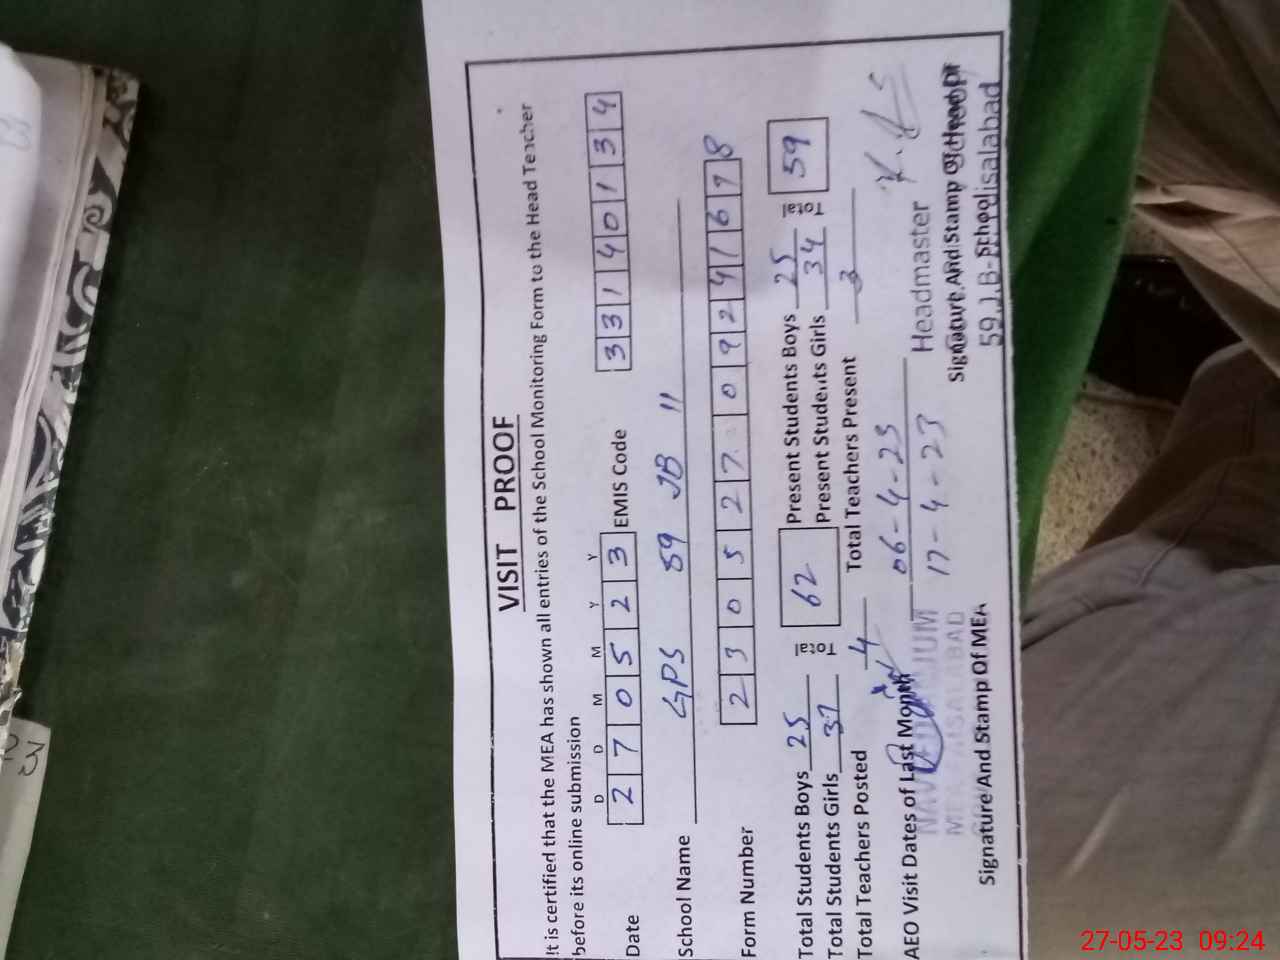 VISIT PROOF
It is certified that the MEA has shown all entries of the School Monitoring Form to the Head Teacher
before its online submission
D D M M Y Y
Date 2 7 0 5 2 3 EMIS Code 3 3 1 4 0 1 3 4
School Name GPS 59 JB II
Form Number 2 3 0 5 2 7 0 9 2 4 1 6 7 8
Total Students Boys 25 Total 62 Present Students Boys 25 Total 59
Total Students Girls 37 Present Students Girls 34
Total Teachers Posted 4 Total Teachers Present 3
AEO Visit Dates of Last Month 06-4-23
17-4-23
Headmaster
MEA FAISALABAD
Signature And Stamp Of MEA
Signature And Stamp Of Head Of
School
59 J.B-Faisalabad
27-05-23 09:24